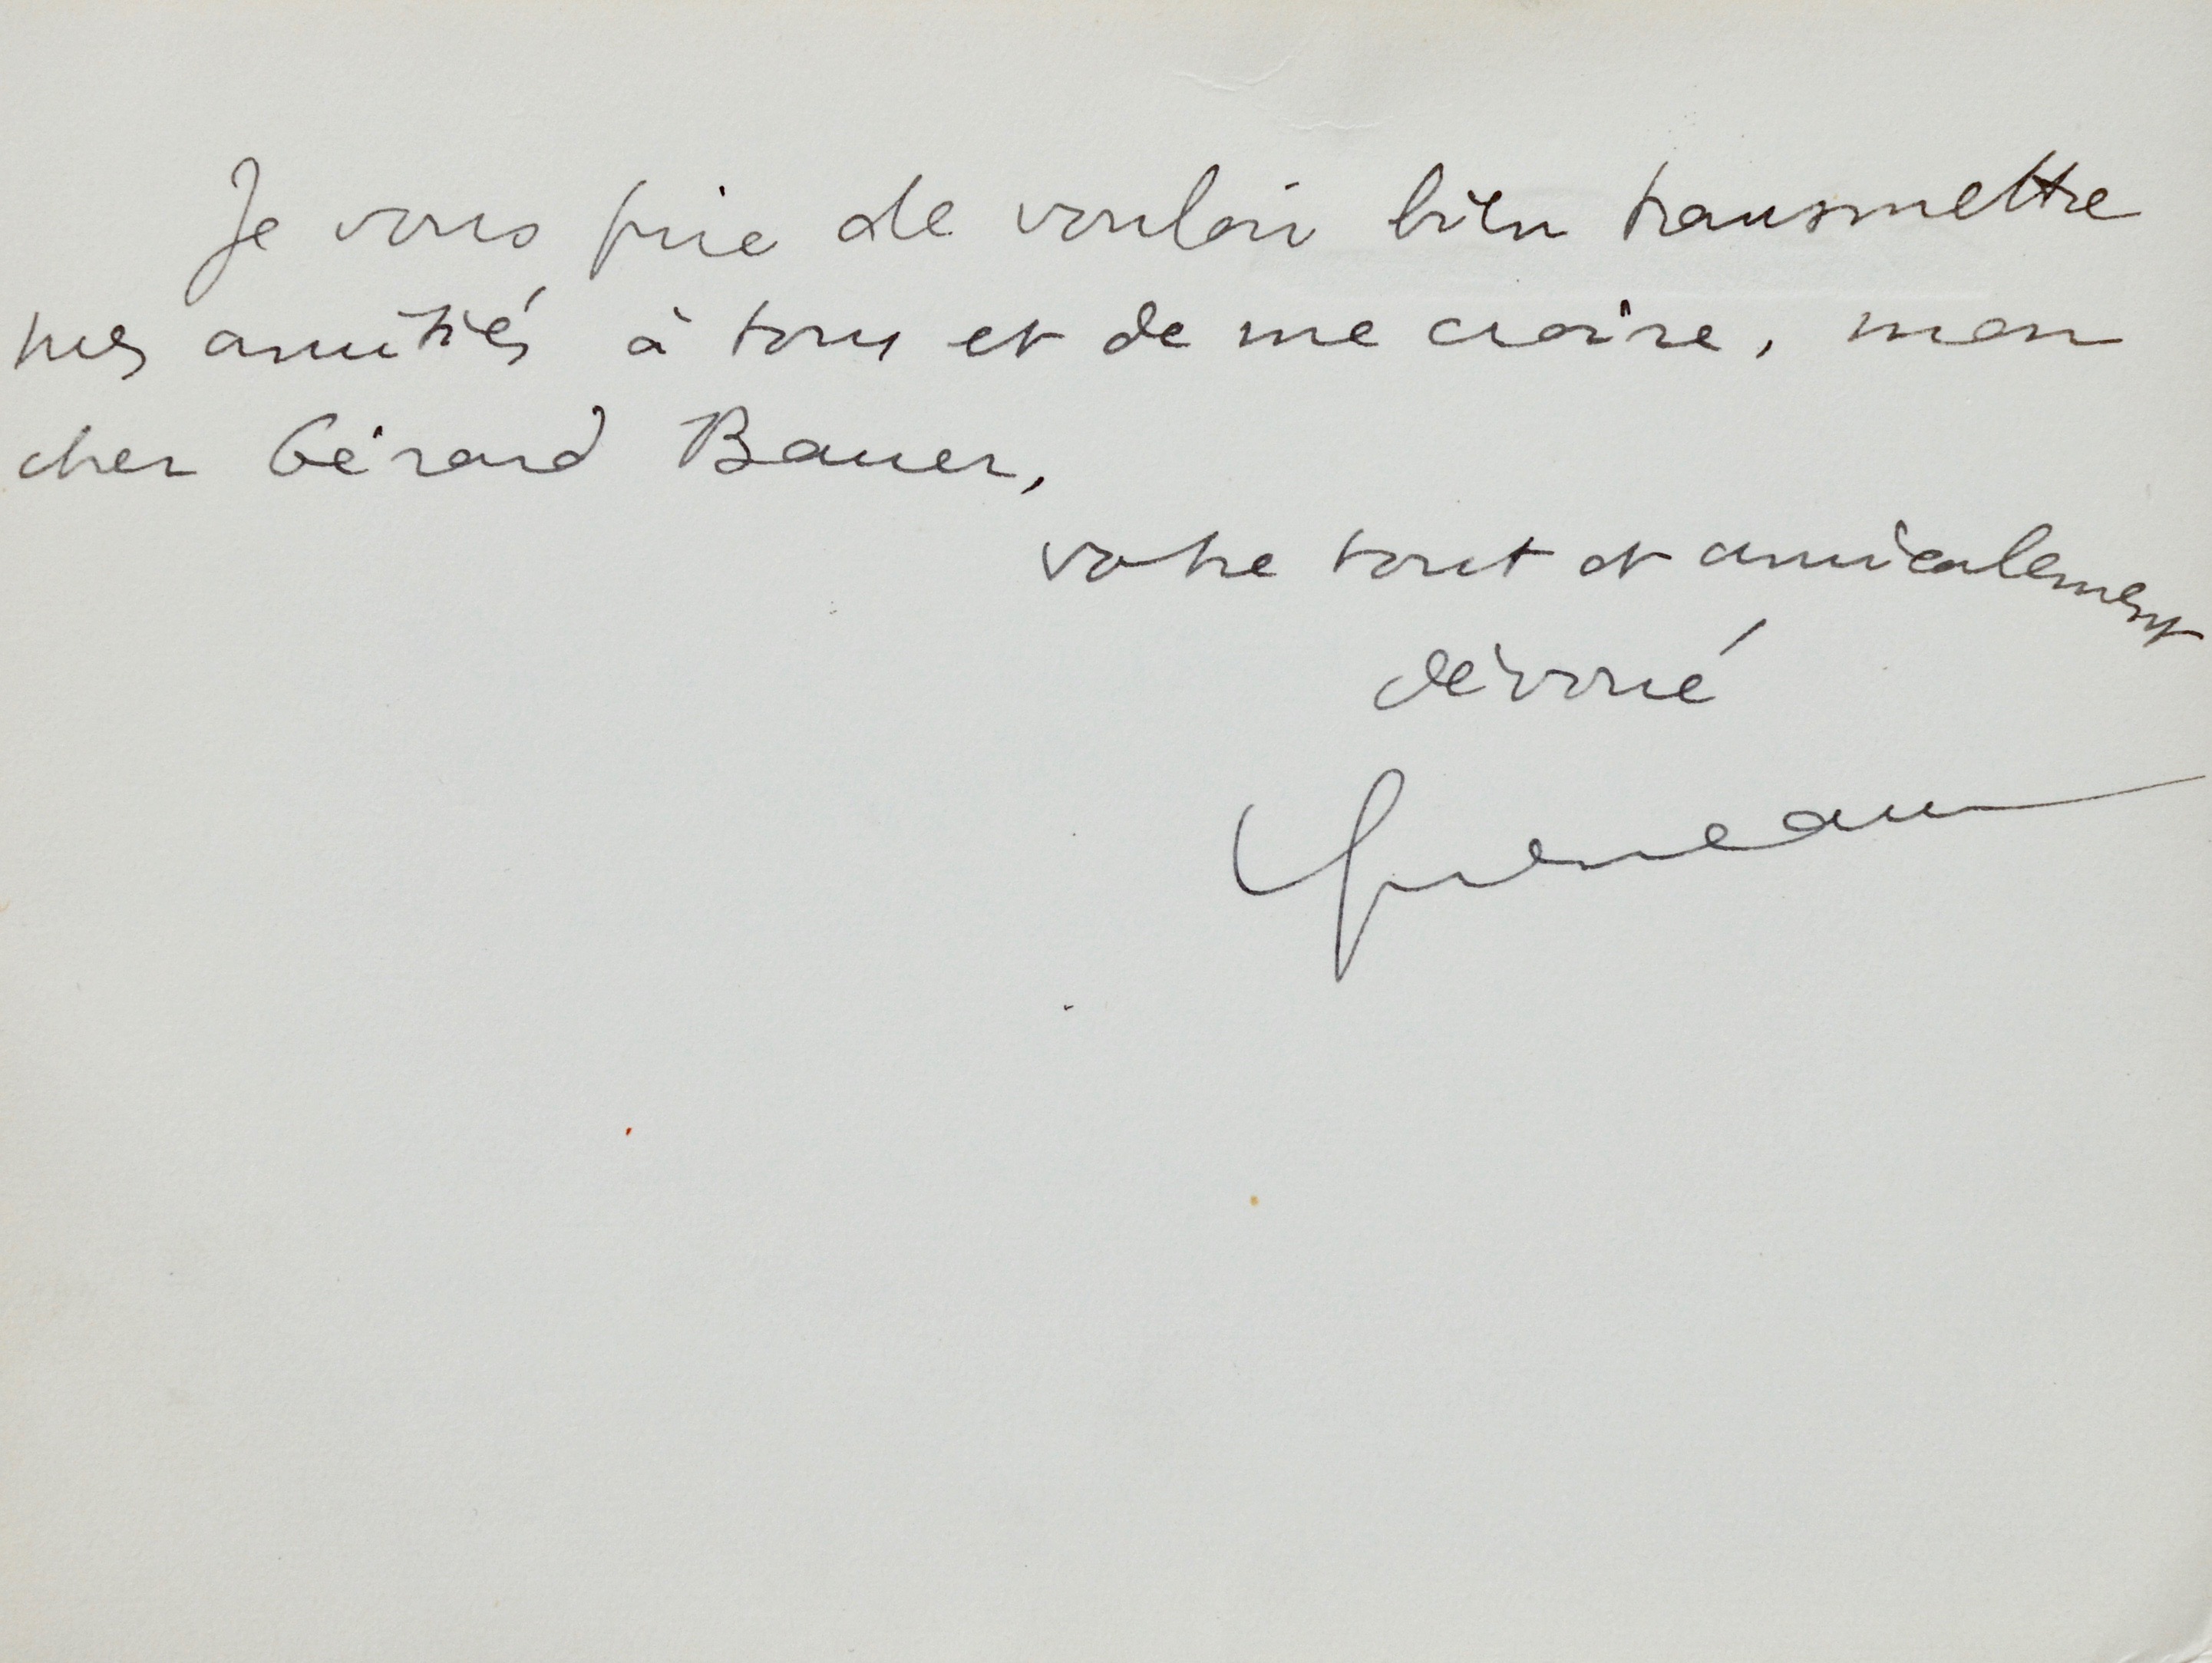 Je vous prie de vouloir bien transmettre
mes amitiés à tous et de me croire, mon
cher Gérard Bauer,
votre tout et amicalement
dévoué
Queneau